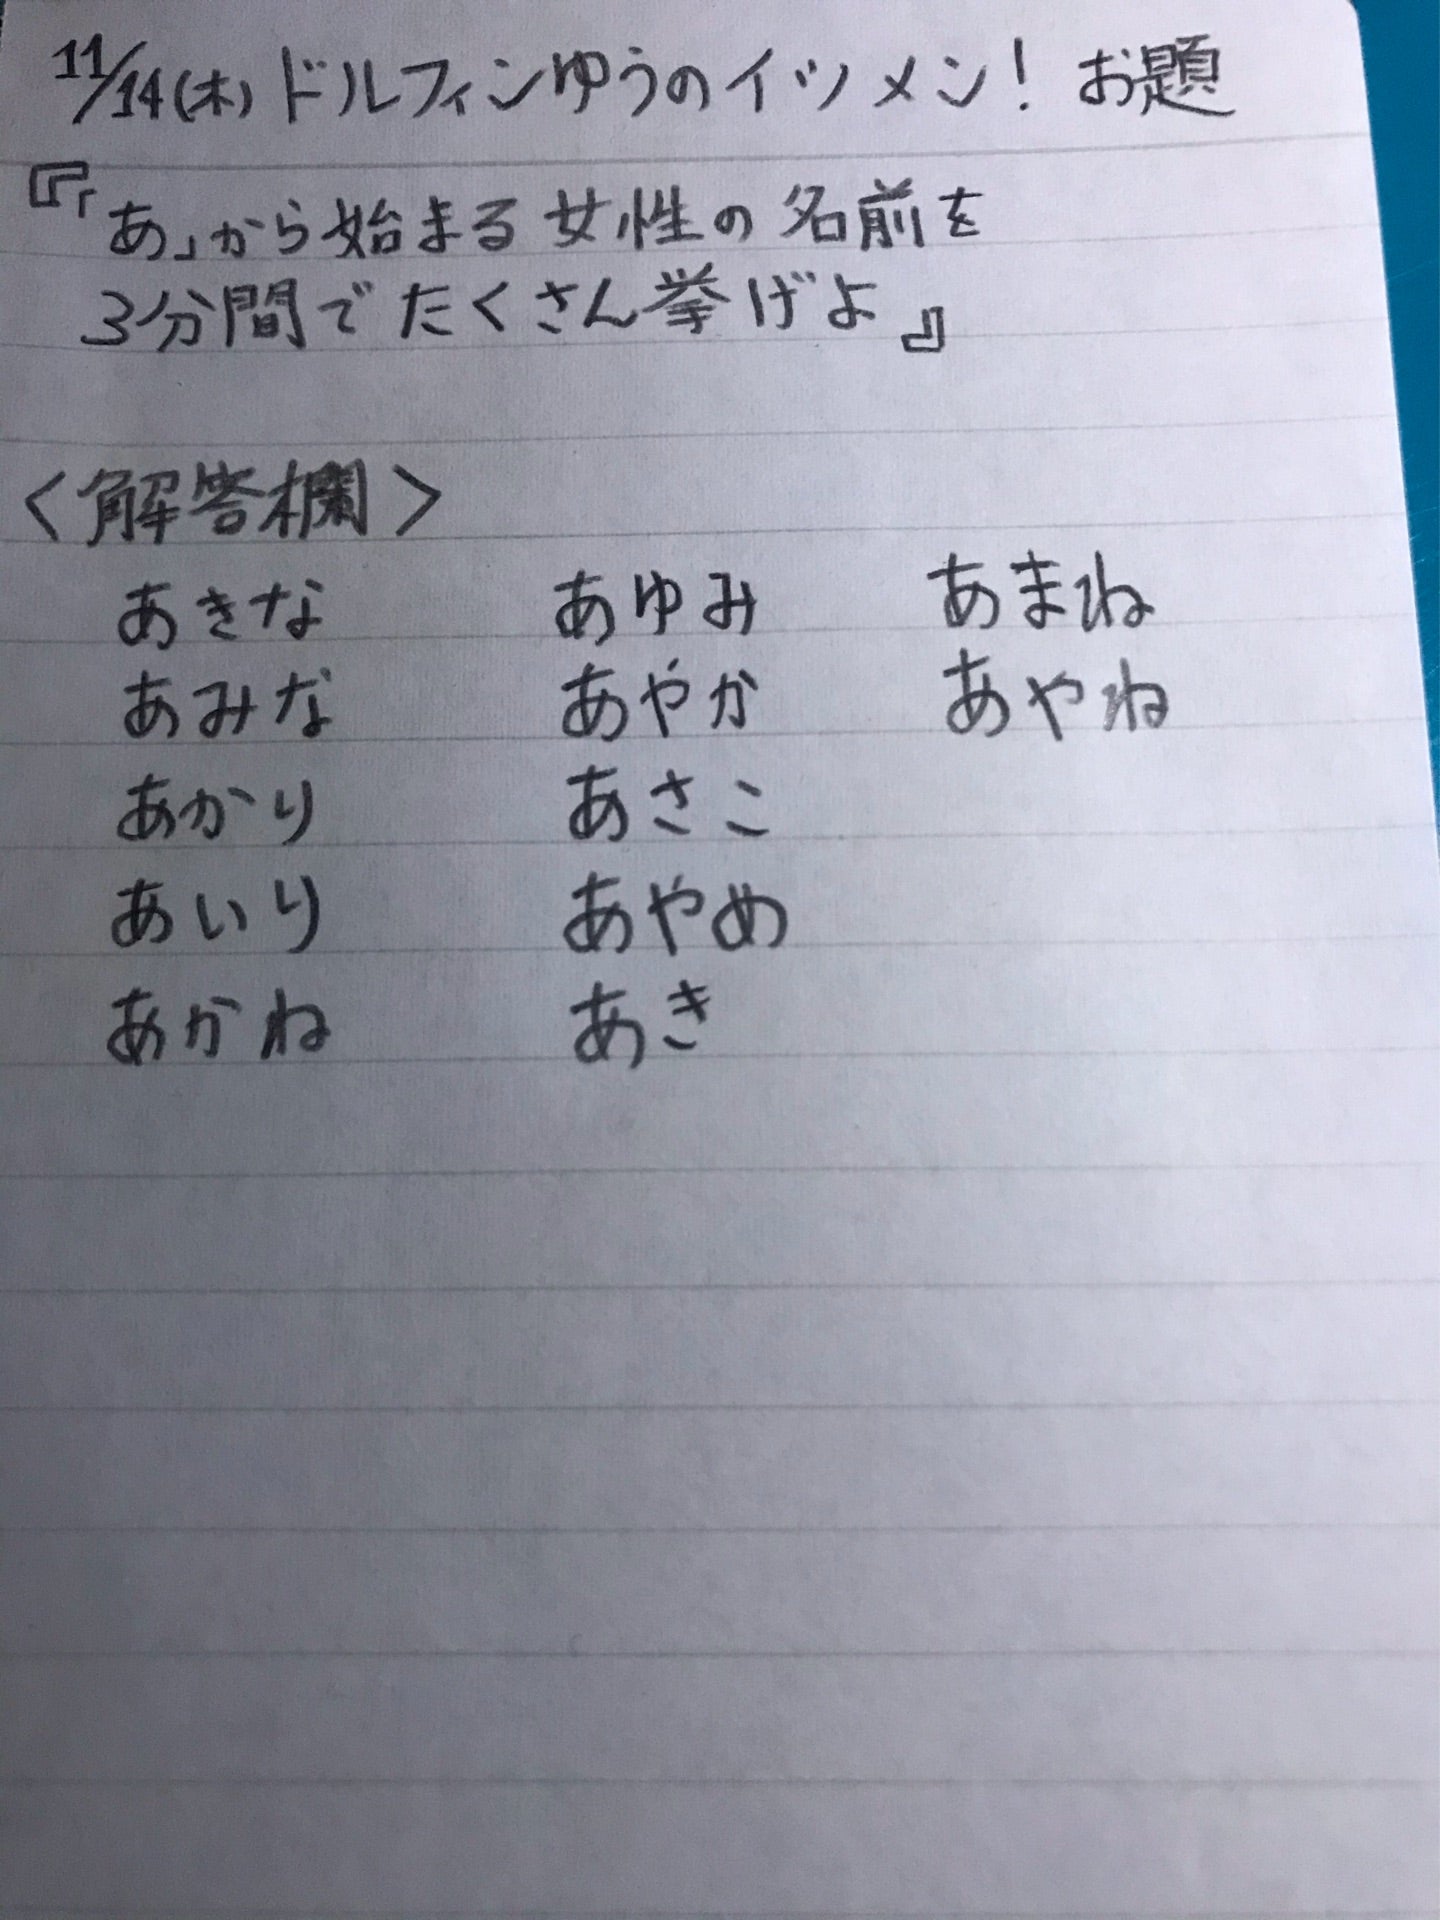 11/14(木)ドルフィンゆうのイツメン! お題
『「あ」から始まる女性の名前を
3分間でたくさん挙げよ』
<解答欄>
あきな あゆみ あまね
あみな あやか あやね
あかり あさこ
あいり あやめ
あかね あき